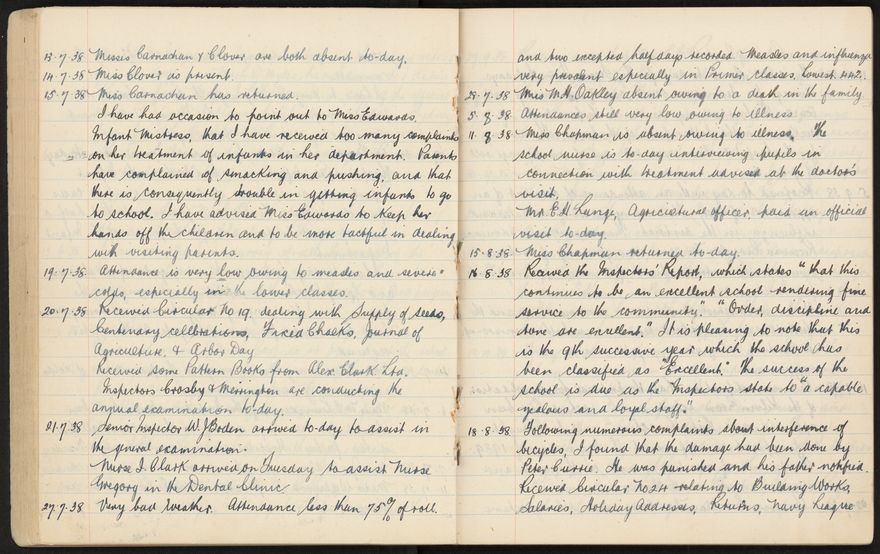 13.7.38 Misses Carnachan & Clover are both absent to-day.
14.7.38 Miss Clover is present.
15.7.38 Miss Carnachan has returned.
I have had occasion to point out to Miss Edwards
Infant Mistress, that I have received too many complaints
on her treatment of infants in her department. Parents
have complained of smacking and pushing, and that
there is consequently trouble in getting infants to go
to school. I have advised Miss Edwards to keep her
hands off the children and to be more tactful in dealing
with visiting parents.
19.7.38 Attendance is very low owing to measles and severe
colds, especially in the lower classes.
20.7.38 Received Circular No 19. dealing with Supply of Seeds,
Centenary celebrations, Fixed Charts, Journal of
Agriculture. & Arbor Day
Received some Pattern Books from Alex. Clark Ltd.
Inspectors Crosby & Merrington are conducting the
annual examination to-day.
21.7.38 Senior Inspector W. J. Boden arrived to-day to assist in
the general examination.
Nurse I. Clark arrived on Tuesday to assist Nurse
Gregory in the Dental Clinic
27.7.38 Very bad weather. Attendance less than 75% of roll.
and two excepted half days recorded. Measles and influenza
very prevalent especially in Primer classes. Lowest 442.
28.7.38 Miss M.H. Oakley absent owing to a death in the family
5.8.38 Attendances still very low owing to illness.
11.8.38 Miss Chapman is absent owing to illness. The
school nurse is to-day interviewing pupils in
connection with treatment advised at the doctor's
visit.
Mr. E.H. Lange, Agricultural officer, paid an official
visit to-day.
15.8.38 Miss Chapman returned to-day.
16.8.38 Received the Inspectors' Report, which states "that this
continues to be an excellent school rendering fine
service to the community." "Order, discipline and
tone are excellent." It is pleasing to note that this
is the 9th successive year which the school has
been classified as "Excellent." the success of the
school is due as the Inspectors state to "a capable
zealous and loyal staff."
18.8.38 Following numerous complaints about interference of
bicycles, I found that the damage had been done by
Peter Currie. He was punished and his father notified.
Received Circular No 24 relating to Building Works,
Salaries, Holiday Addresses, Returns, Navy League